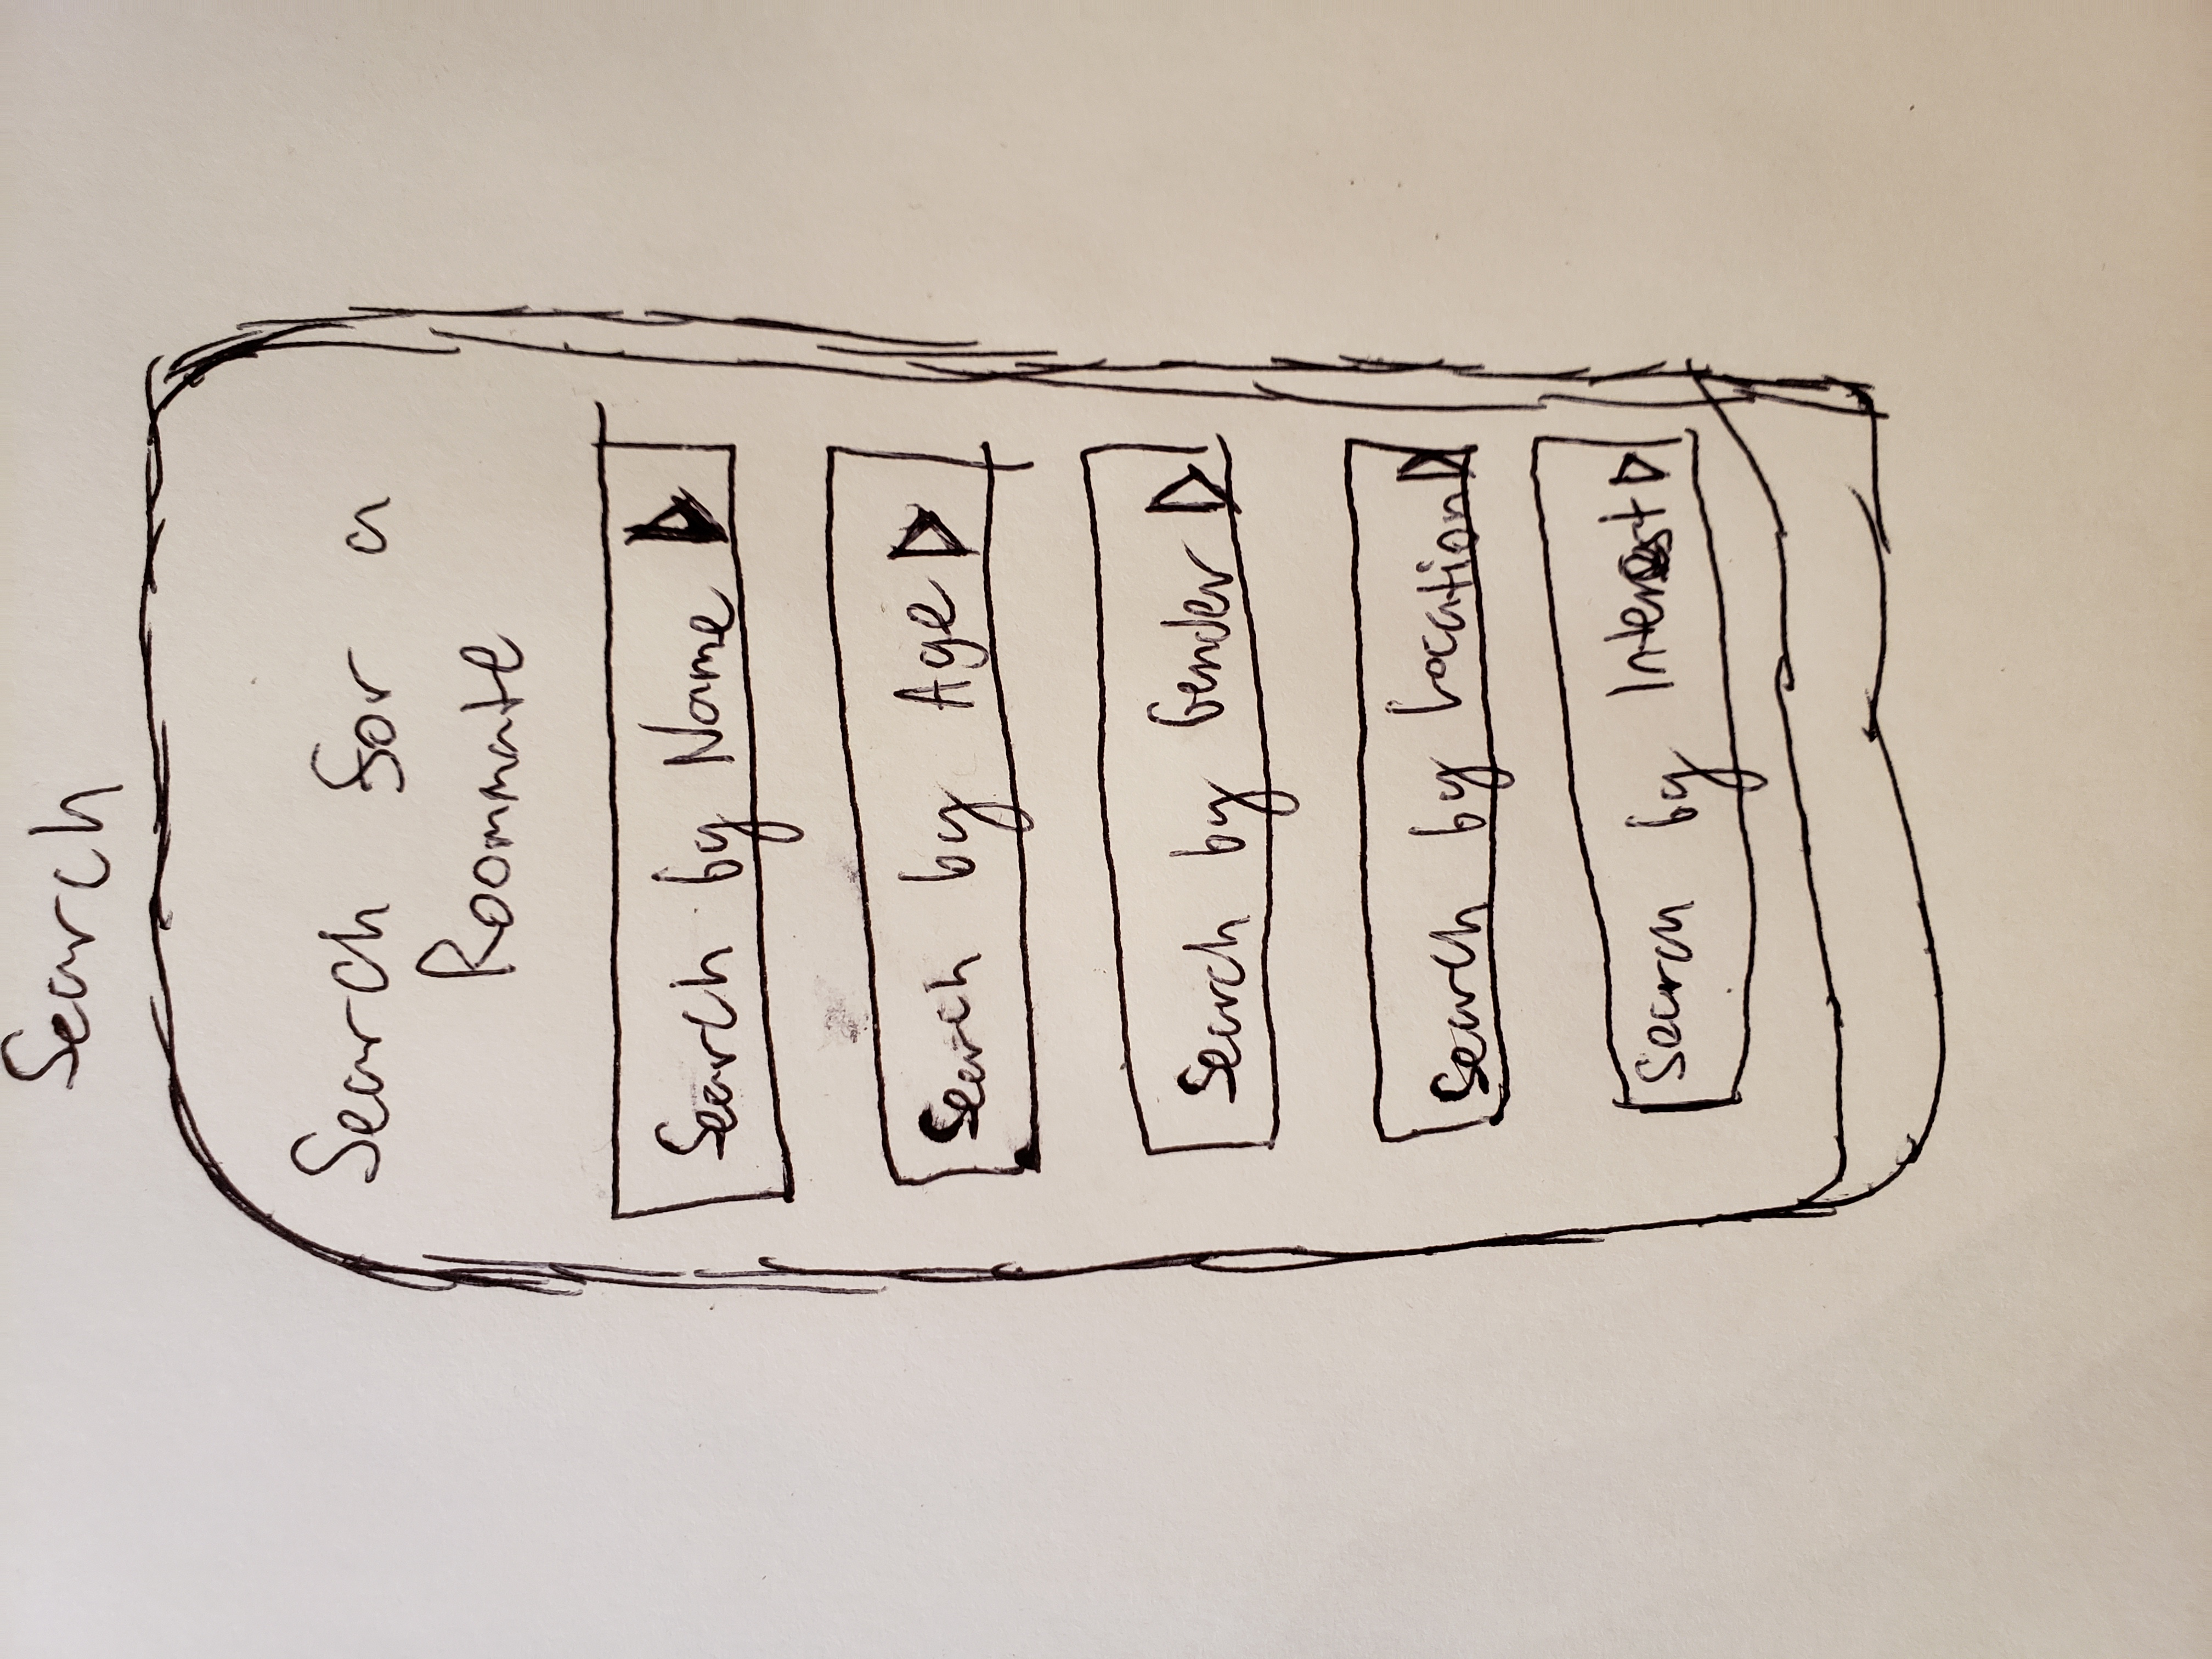 Search
Search for a
Roommate
Search by Name
Search by Age
Search by Gender
Search by Location
Search by Interest